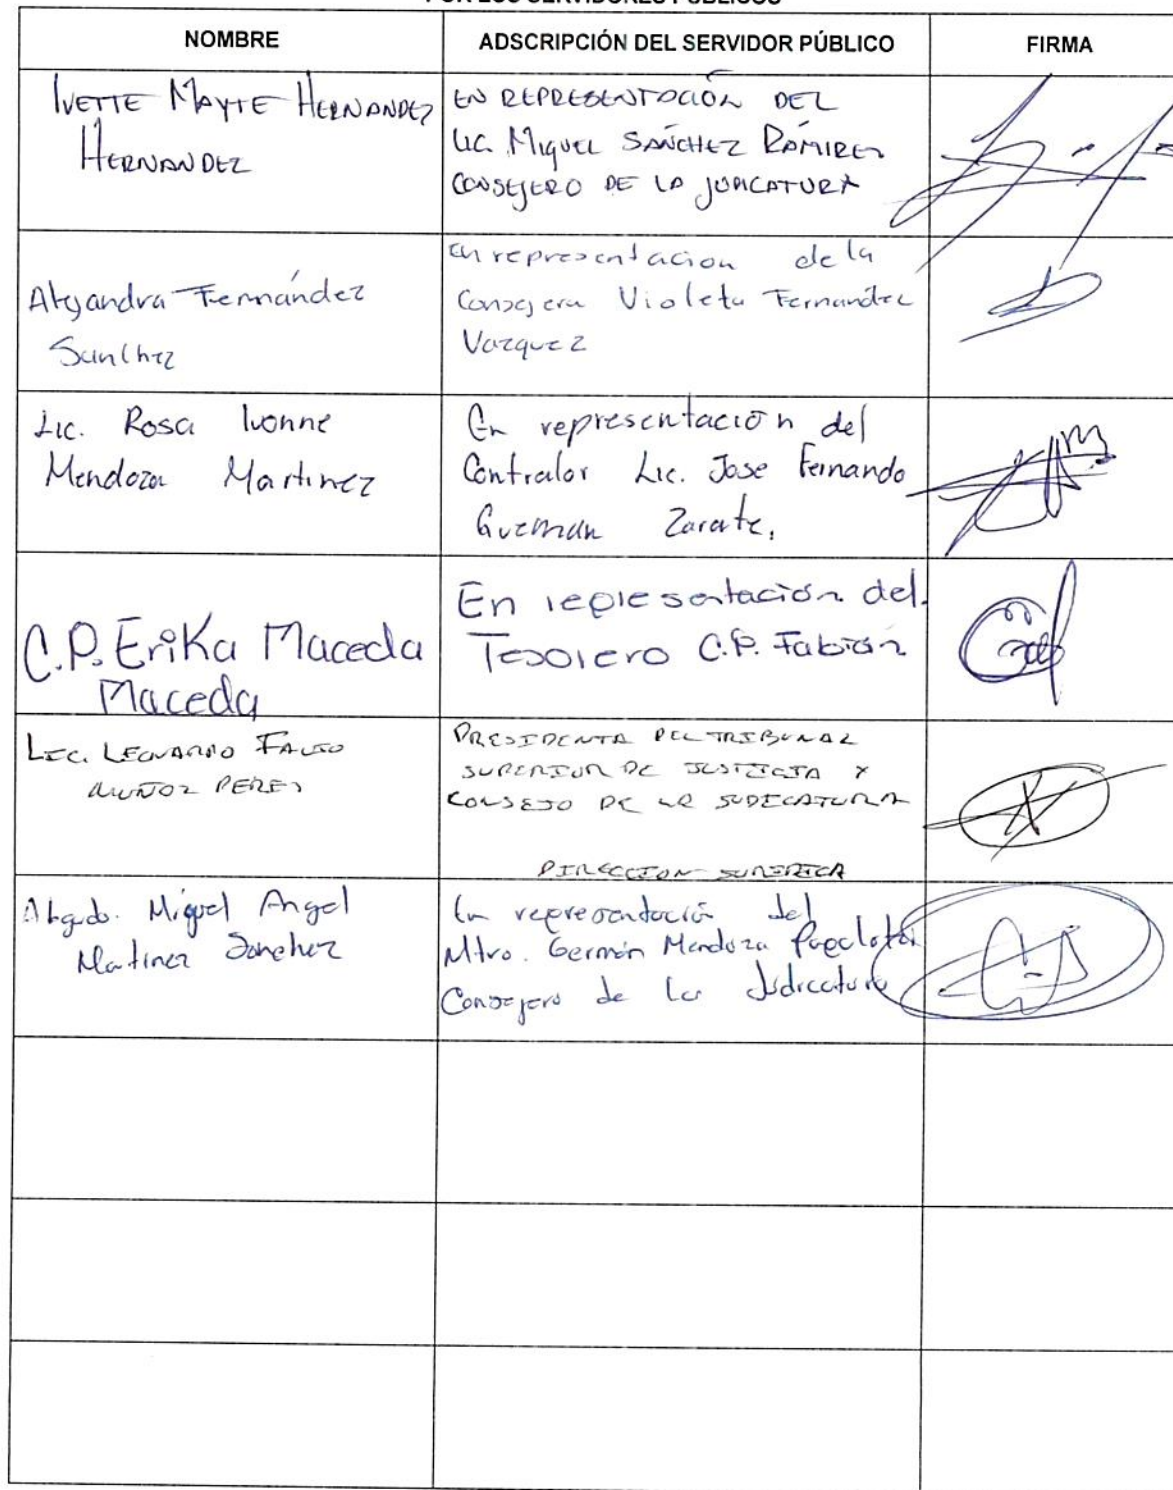 POR LOS SERVIDORES PÚBLICOS
NOMBRE
ADSCRIPCIÓN DEL SERVIDOR PÚBLICO
FIRMA
IVETTE MAYTE HERNANDEZ
HERNANDEZ
EN REPRESENTACIÓN DEL
LIC. MIGUEL SÁNCHEZ RAMIREZ
CONSEJERO DE LA JUDICATURA
Alejandra Fernández
Sanchez
En representacion de la
Consejera Violeta Fernandez
Vazquez
Lic. Rosa Ivonne
Mendoza Martinez
En representación del
Contralor Lic. Jose Fernando
Guzman Zarate.
C.P. Erika Maceda
Maceda
En representación del.
Tesorero C.P. Fabián
LIC. LEONARDO FAUSTO
MUÑOZ PEREZ
PRESIDENTA DEL TRIBUNAL
SUPERIOR DE JUSTICIA Y
CONSEJO DE LA JUDICATURA
DIRECCION JURIDICA
Abgdo. Miguel Angel
Martinez Sanchez
En representación del
Mtro. Germán Mendoza
Consejero de la Judicatura